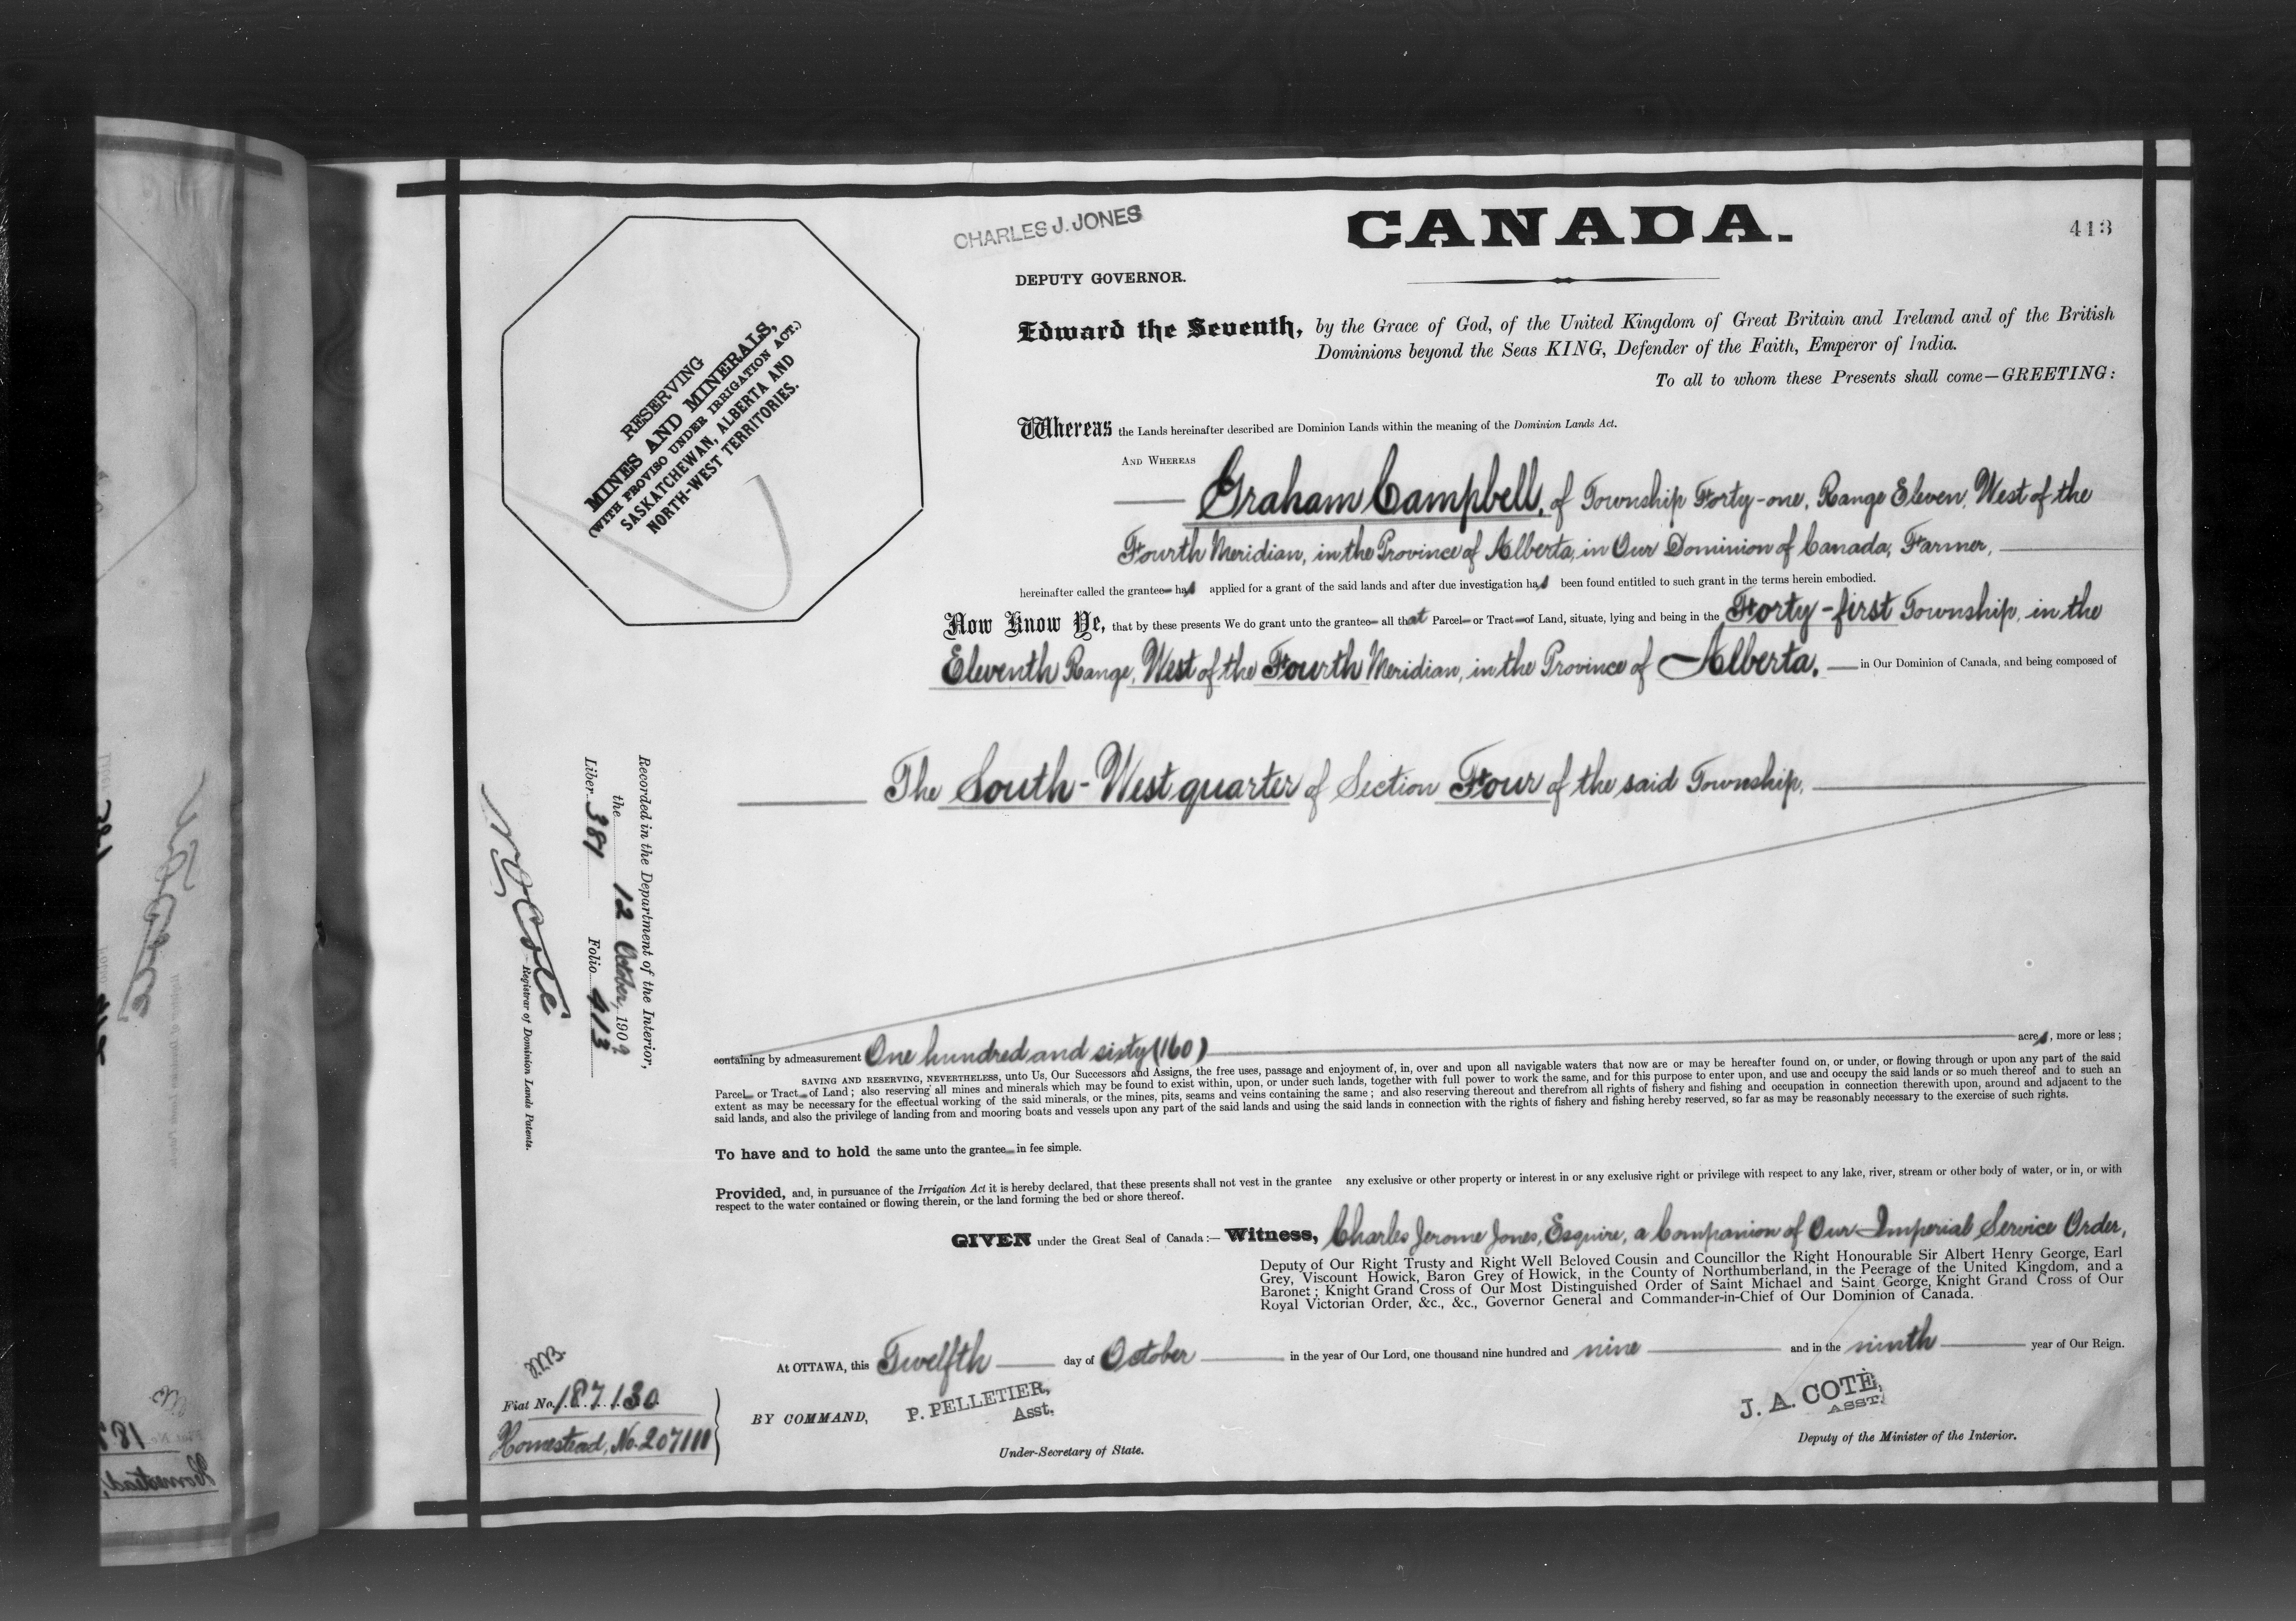 CHARLES J. JONES
CANADA.
413
DEPUTY GOVERNOR.
Edward the Seventh, by the Grace of God, of the United Kingdom of Great Britain and Ireland and of the British
Dominions beyond the Seas KING, Defender of the Faith, Emperor of India.
To all to whom these Presents shall come—GREETING:
RESERVING
MINES AND MINERALS,
(WITH PROVISO UNDER IRRIGATION ACT.)
SASKATCHEWAN, ALBERTA AND
NORTH-WEST TERRITORIES.
Whereas the Lands hereinafter described are Dominion Lands within the meaning of the Dominion Lands Act.
AND WHEREAS
Graham Campbell, of Township Forty-one, Range Eleven, West of the
Fourth Meridian, in the Province of Alberta, in Our Dominion of Canada, Farmer,
hereinafter called the grantee has applied for a grant of the said lands and after due investigation has been found entitled to such grant in the terms herein embodied.
Now Know Ye, that by these presents We do grant unto the grantee all that Parcel or Tract of Land, situate, lying and being in the Forty-first Township, in the
Eleventh Range, West of the Fourth Meridian, in the Province of Alberta, in Our Dominion of Canada, and being composed of
The South-West quarter of Section Four of the said Township,
Recorded in the Department of the Interior,
the 12 October, 1909
Liber 389 Folio 413
Registrar of Dominion Lands Patents.
containing by admeasurement One hundred and sixty (160) acres, more or less;
SAVING AND RESERVING, NEVERTHELESS, unto Us, Our Successors and Assigns, the free uses, passage and enjoyment of, in, over and upon all navigable waters that now are or may be hereafter found on, or under, or flowing through or upon any part of the said
Parcel or Tract of Land; also reserving all mines and minerals which may be found to exist within, upon, or under such lands, together with full power to work the same, and for this purpose to enter upon, and use and occupy the said lands or so much thereof and to such an
extent as may be necessary for the effectual working of the said minerals, or the mines, pits, seams and veins containing the same; and also reserving thereout and therefrom all rights of fishery and fishing and occupation in connection therewith upon, around and adjacent to the
said lands, and also the privilege of landing from and mooring boats and vessels upon any part of the said lands and using the said lands in connection with the rights of fishery and fishing hereby reserved, so far as may be reasonably necessary to the exercise of such rights.
To have and to hold the same unto the grantee in fee simple.
Provided, and, in pursuance of the Irrigation Act it is hereby declared, that these presents shall not vest in the grantee any exclusive or other property or interest in or any exclusive right or privilege with respect to any lake, river, stream or other body of water, or in, or with
respect to the water contained or flowing therein, or the land forming the bed or shore thereof.
GIVEN under the Great Seal of Canada:— Witness, Charles Jerome Jones, Esquire, a Companion of Our Imperial Service Order,
Deputy of Our Right Trusty and Right Well Beloved Cousin and Councillor the Right Honourable Sir Albert Henry George, Earl
Grey, Viscount Howick, Baron Grey of Howick, in the County of Northumberland, in the Peerage of the United Kingdom, and a
Baronet; Knight Grand Cross of Our Most Distinguished Order of Saint Michael and Saint George, Knight Grand Cross of Our
Royal Victorian Order, &c., &c., Governor General and Commander-in-Chief of Our Dominion of Canada.
At OTTAWA, this Twelfth day of October in the year of Our Lord, one thousand nine hundred and nine and in the ninth year of Our Reign.
Fiat No. 187130
Homestead, No. 207111
BY COMMAND,
P. PELLETIER,
Asst.
Under-Secretary of State.
J. A. COTE,
ASST.
Deputy of the Minister of the Interior.